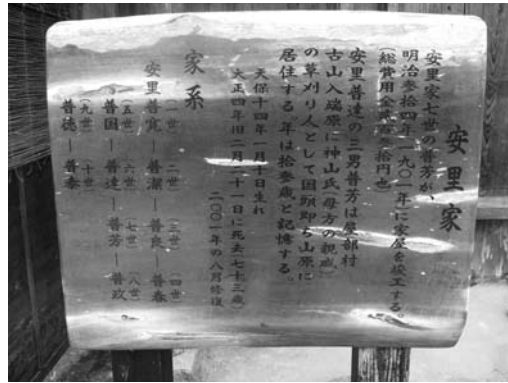 安里家
安里家七世の普芳が、
明治参拾四年一九〇一年に家屋を竣工する。
(総費用全貳百 拾円也)
安里普達の三男普芳は屋部村
古山入端原に神山氏(母方の親戚)
の草刈り人として国頭即ち山原に
居住する。年は拾参歳と記憶する。
天保十四年一月十日生れ
大正四年旧二月二十一日に死去七十三歳)
二〇〇一年の八月修復
家系
(一世) (二世) (三世) (四世)
安里普寛―普潔―普良―普春
(五世) (六世) (七世) (八世)
―普国―普達―普芳―普政
(九世) (十世)
―普徳―普泰